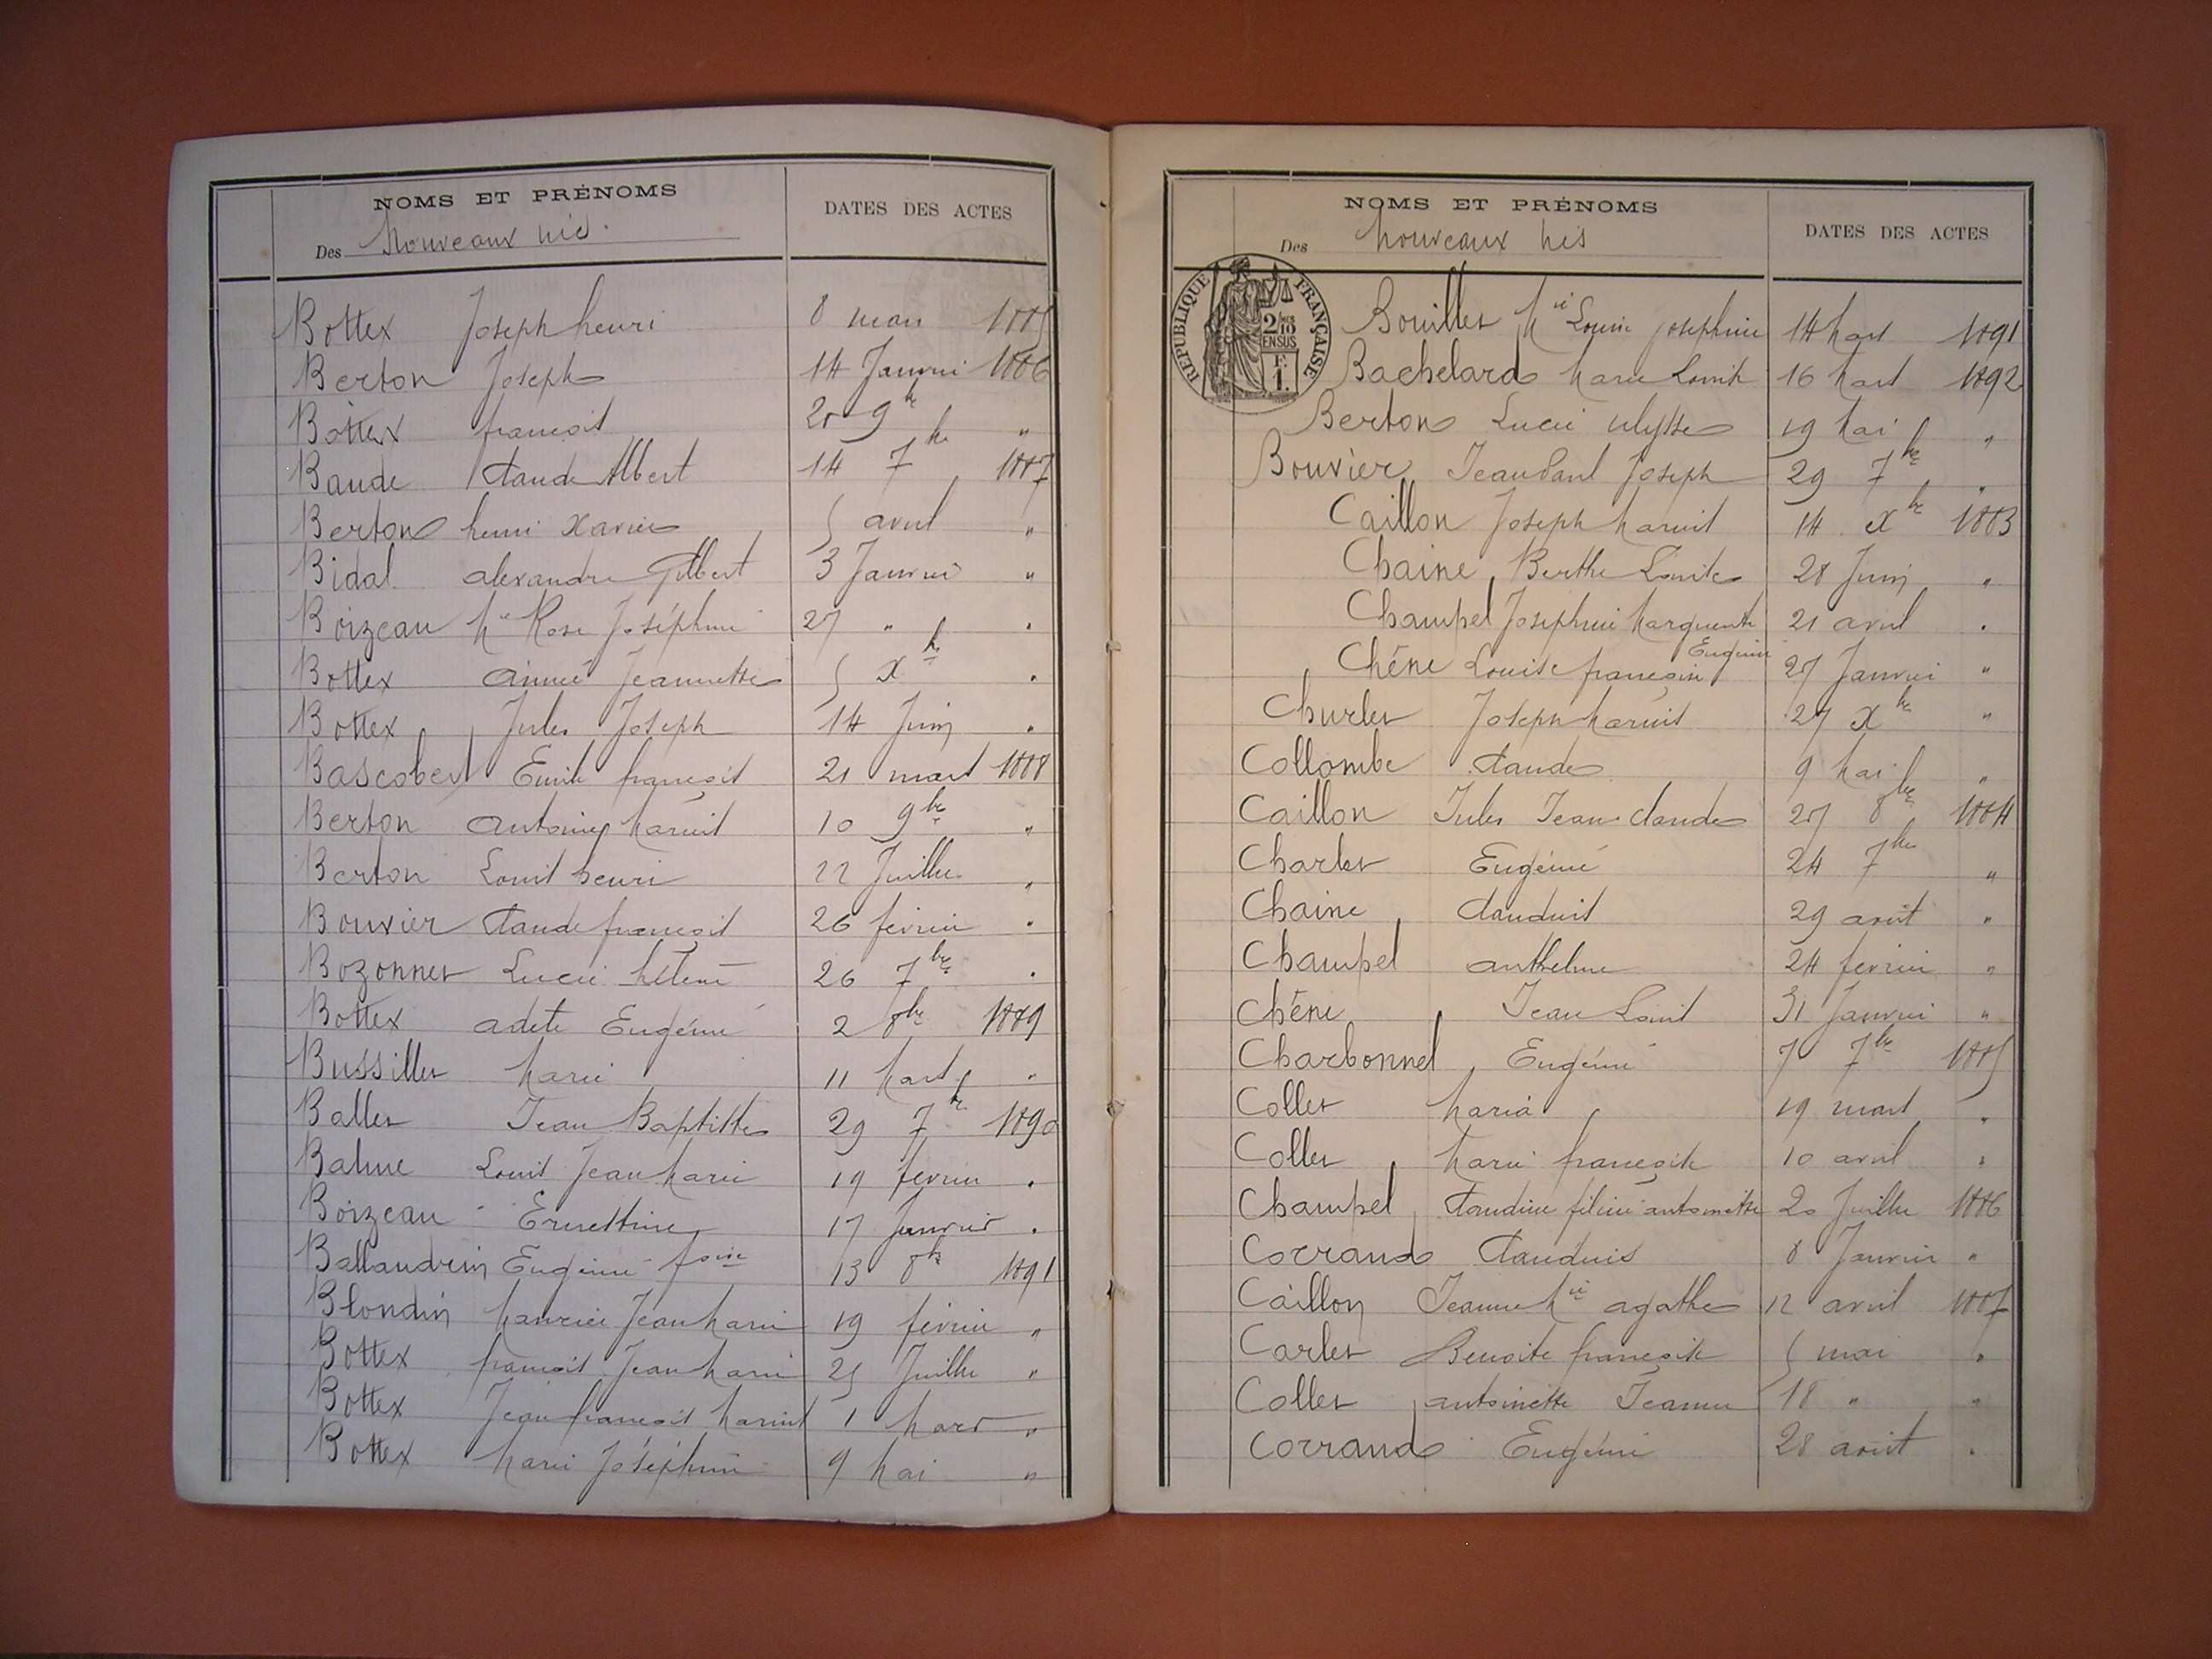 NOMS ET PRÉNOMS
DATES DES ACTES
Des Nouveaux nés.
Bottex Joseph henri 8 mars 1885
Berton Joseph 14 Janvier 1886
Bottex françois 9bre "
Baude Claude Albert 14 7bre 1887
Berton henri Xavier 5 avril "
Bidal alexandre Gilbert 3 Janvier "
Boizeau Mie Rose Joséphine 27 " "
Bottex aimée Jeannette 5 Xbre "
Bottex Jules Joseph 14 Juin "
Bascobert Emile françois 21 mars 1888
Berton Antoine Marius 10 9bre "
Berton Louis henri 22 Juillet "
Bouvier Claude françois 26 février "
Bozonnet Lucie hélène 26 7bre "
Bottex adèle Eugénie 2 8bre 1889
Bussillet Marie 11 Mars "
Ballet Jean Baptiste 29 7bre 1890
Balme Louis Jean Marie 19 février "
Boizeau Ernestine 17 Janvier "
Ballandrin Eugénie fsine 13 8bre 1891
Blondin Maurice Jean Marie 19 février "
Bottex françois Jean Marie 25 Juillet "
Bottex Jean françois Marius 1 Mars "
Bottex Marie Joséphine 9 Mai "
NOMS ET PRÉNOMS
DATES DES ACTES
Des Nouveaux nés
RÉPUBLIQUE FRANÇAISE
2/10 EN SUS
F. 1.
Bouillet Mie Louise Joséphine 14 Mars 1891
Bachelard Marie Louise 16 Mars 1892
Berton Lucien Ulysse 19 Mai "
Bouvier Jean Paul Joseph 29 7bre "
Caillon Joseph Marius 14 Xbre 1883
Chaine Berthe Louise 28 Juin "
Champel Joséphine Marguerite 21 avril "
Chêne Louise françoise Eugénie 27 Janvier "
Churlet Joseph Marius 27 Xbre "
Collombe Claude 9 Mai "
Caillon Jules Jean Claude 8bre 1884
Charlet Eugénie 24 7bre "
Chaine Claudius 29 août "
Champel anthelme 24 février "
Chêne Jean Louis 31 Janvier "
Charbonnel Eugénie 7 7bre 1885
Collet Maria 19 mars "
Collet Marie françoise 10 avril "
Champel Claudine félicie antoinette 20 Juillet 1886
Corrand Claudius 8 Janvier "
Caillon Jeanne Mie agathe 12 avril 1887
Carlet Benoite françoise 5 mai "
Collet antoinette Jeanne 18 " "
Corrand Eugénie 28 août "